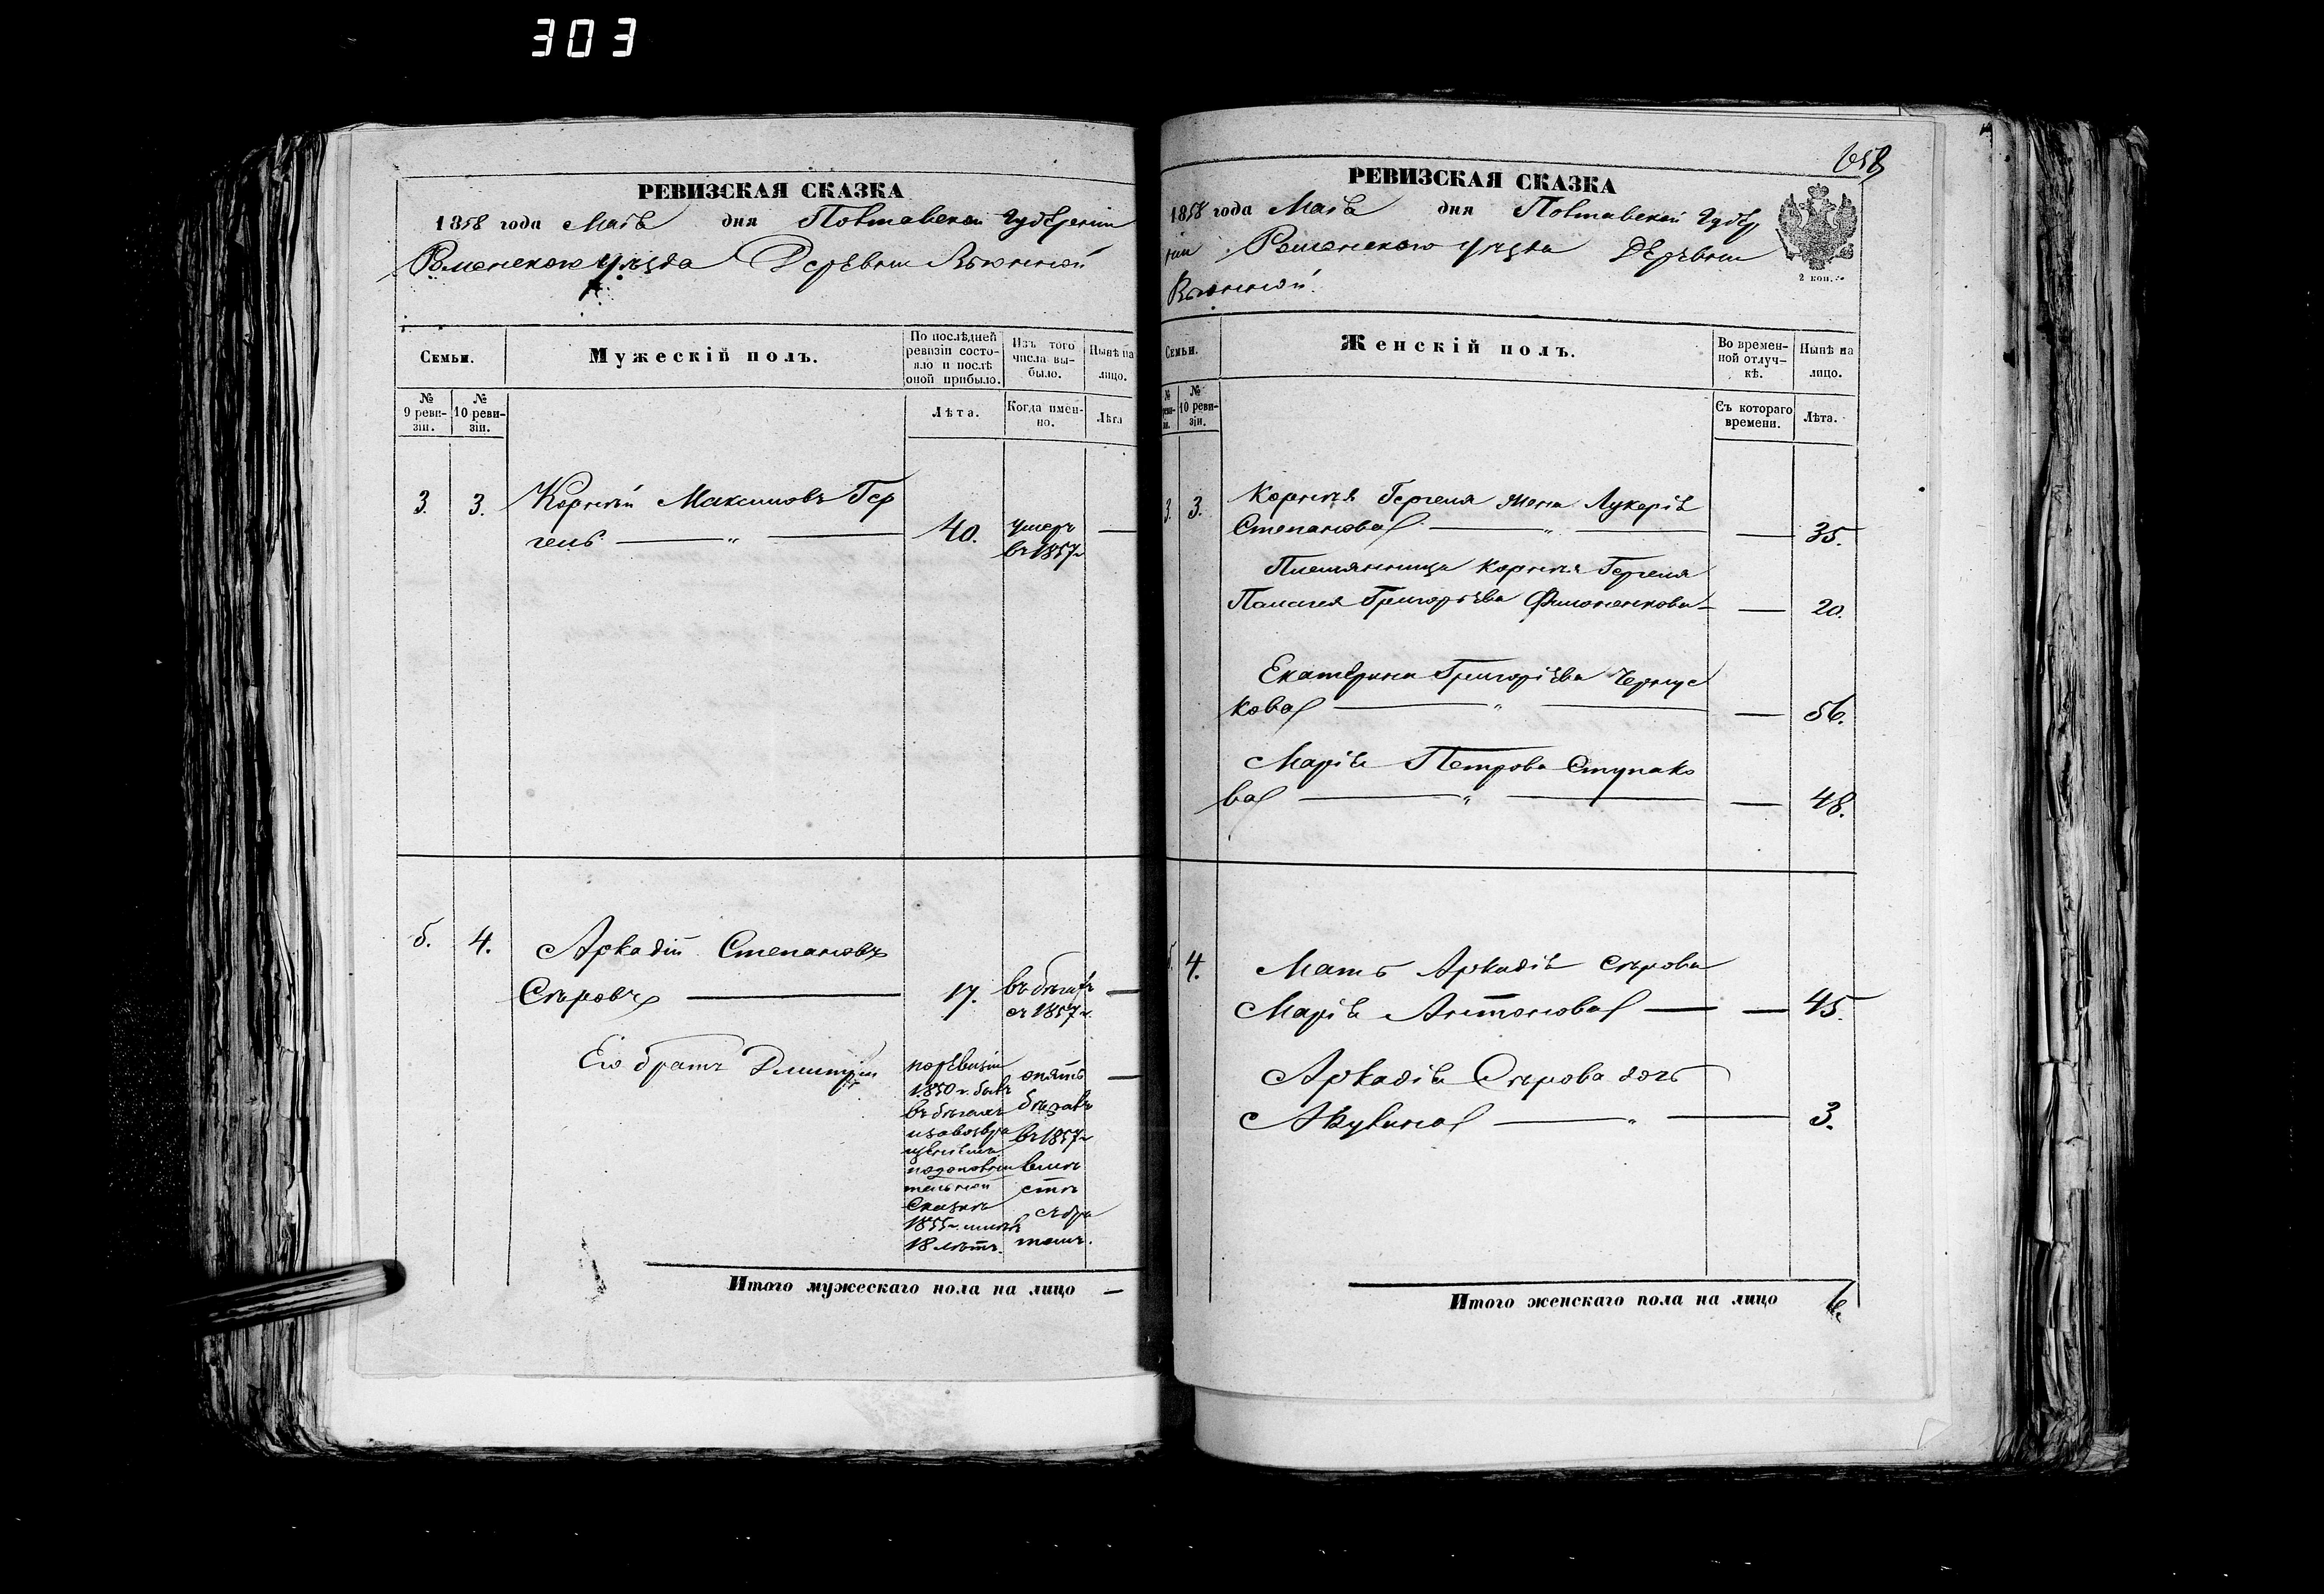 303
РЕВИЗСКАЯ СКАЗКА
1858 года Маія дня Полтавской Губерніи
Роменского уѣзда Деревни Вьюнной
Семьи.
Мужескій полъ.
По послѣдней ревизіи состояло и послѣ оной прибыло.
Изъ того числа выбыло.
Нынѣ на лицо.
№ 9 ревизіи.
№ 10 ревизіи.
Лѣта.
Когда именно.
Лѣта
3. 3. Корнѣй Максимовъ Гер
гель — „ — 40. умеръ
въ 1857 г —
5. 4. Аркадій Степановъ
Сѣровъ — 17. въ бѣгахъ —
съ 1857 г.
Его братъ Дмитрій
по ревизіи
1850 г. былъ
въ бѣгахъ
сказкѣ
1855 г.
18 лѣтъ.
опять —
бѣжавъ
въ 1857 г
вмѣ
стѣ
съ бра
томъ.
Итого мужескаго пола на лицо —
658
РЕВИЗСКАЯ СКАЗКА
1858 года Маія дня Полтавской Губер
ніи Роменского уѣзда Деревни
Вьюнной.
2 коп.
Семьи.
Женскій полъ.
Во временной отлучкѣ.
Нынѣ на лицо.
№ 10 ревизіи.
Съ котораго времени.
Лѣта.
3. 3. Корнѣя Гергеля жена Лукерія
Степанова — „ — — 35.
Племянница Корнѣя Гергеля
Палагея Григоріева Филоненкова — — 20.
Екатерина Григоріева Чернус
кова — „ — — 56.
Марія Петрова Ступако
ва — „ — — 48.
4. Мать Аркадія Сѣрова
Марія Антонова — — 45.
Аркадія Сѣрова дочь
Акулина — „ — 3.
Итого женскаго пола на лицо 6.